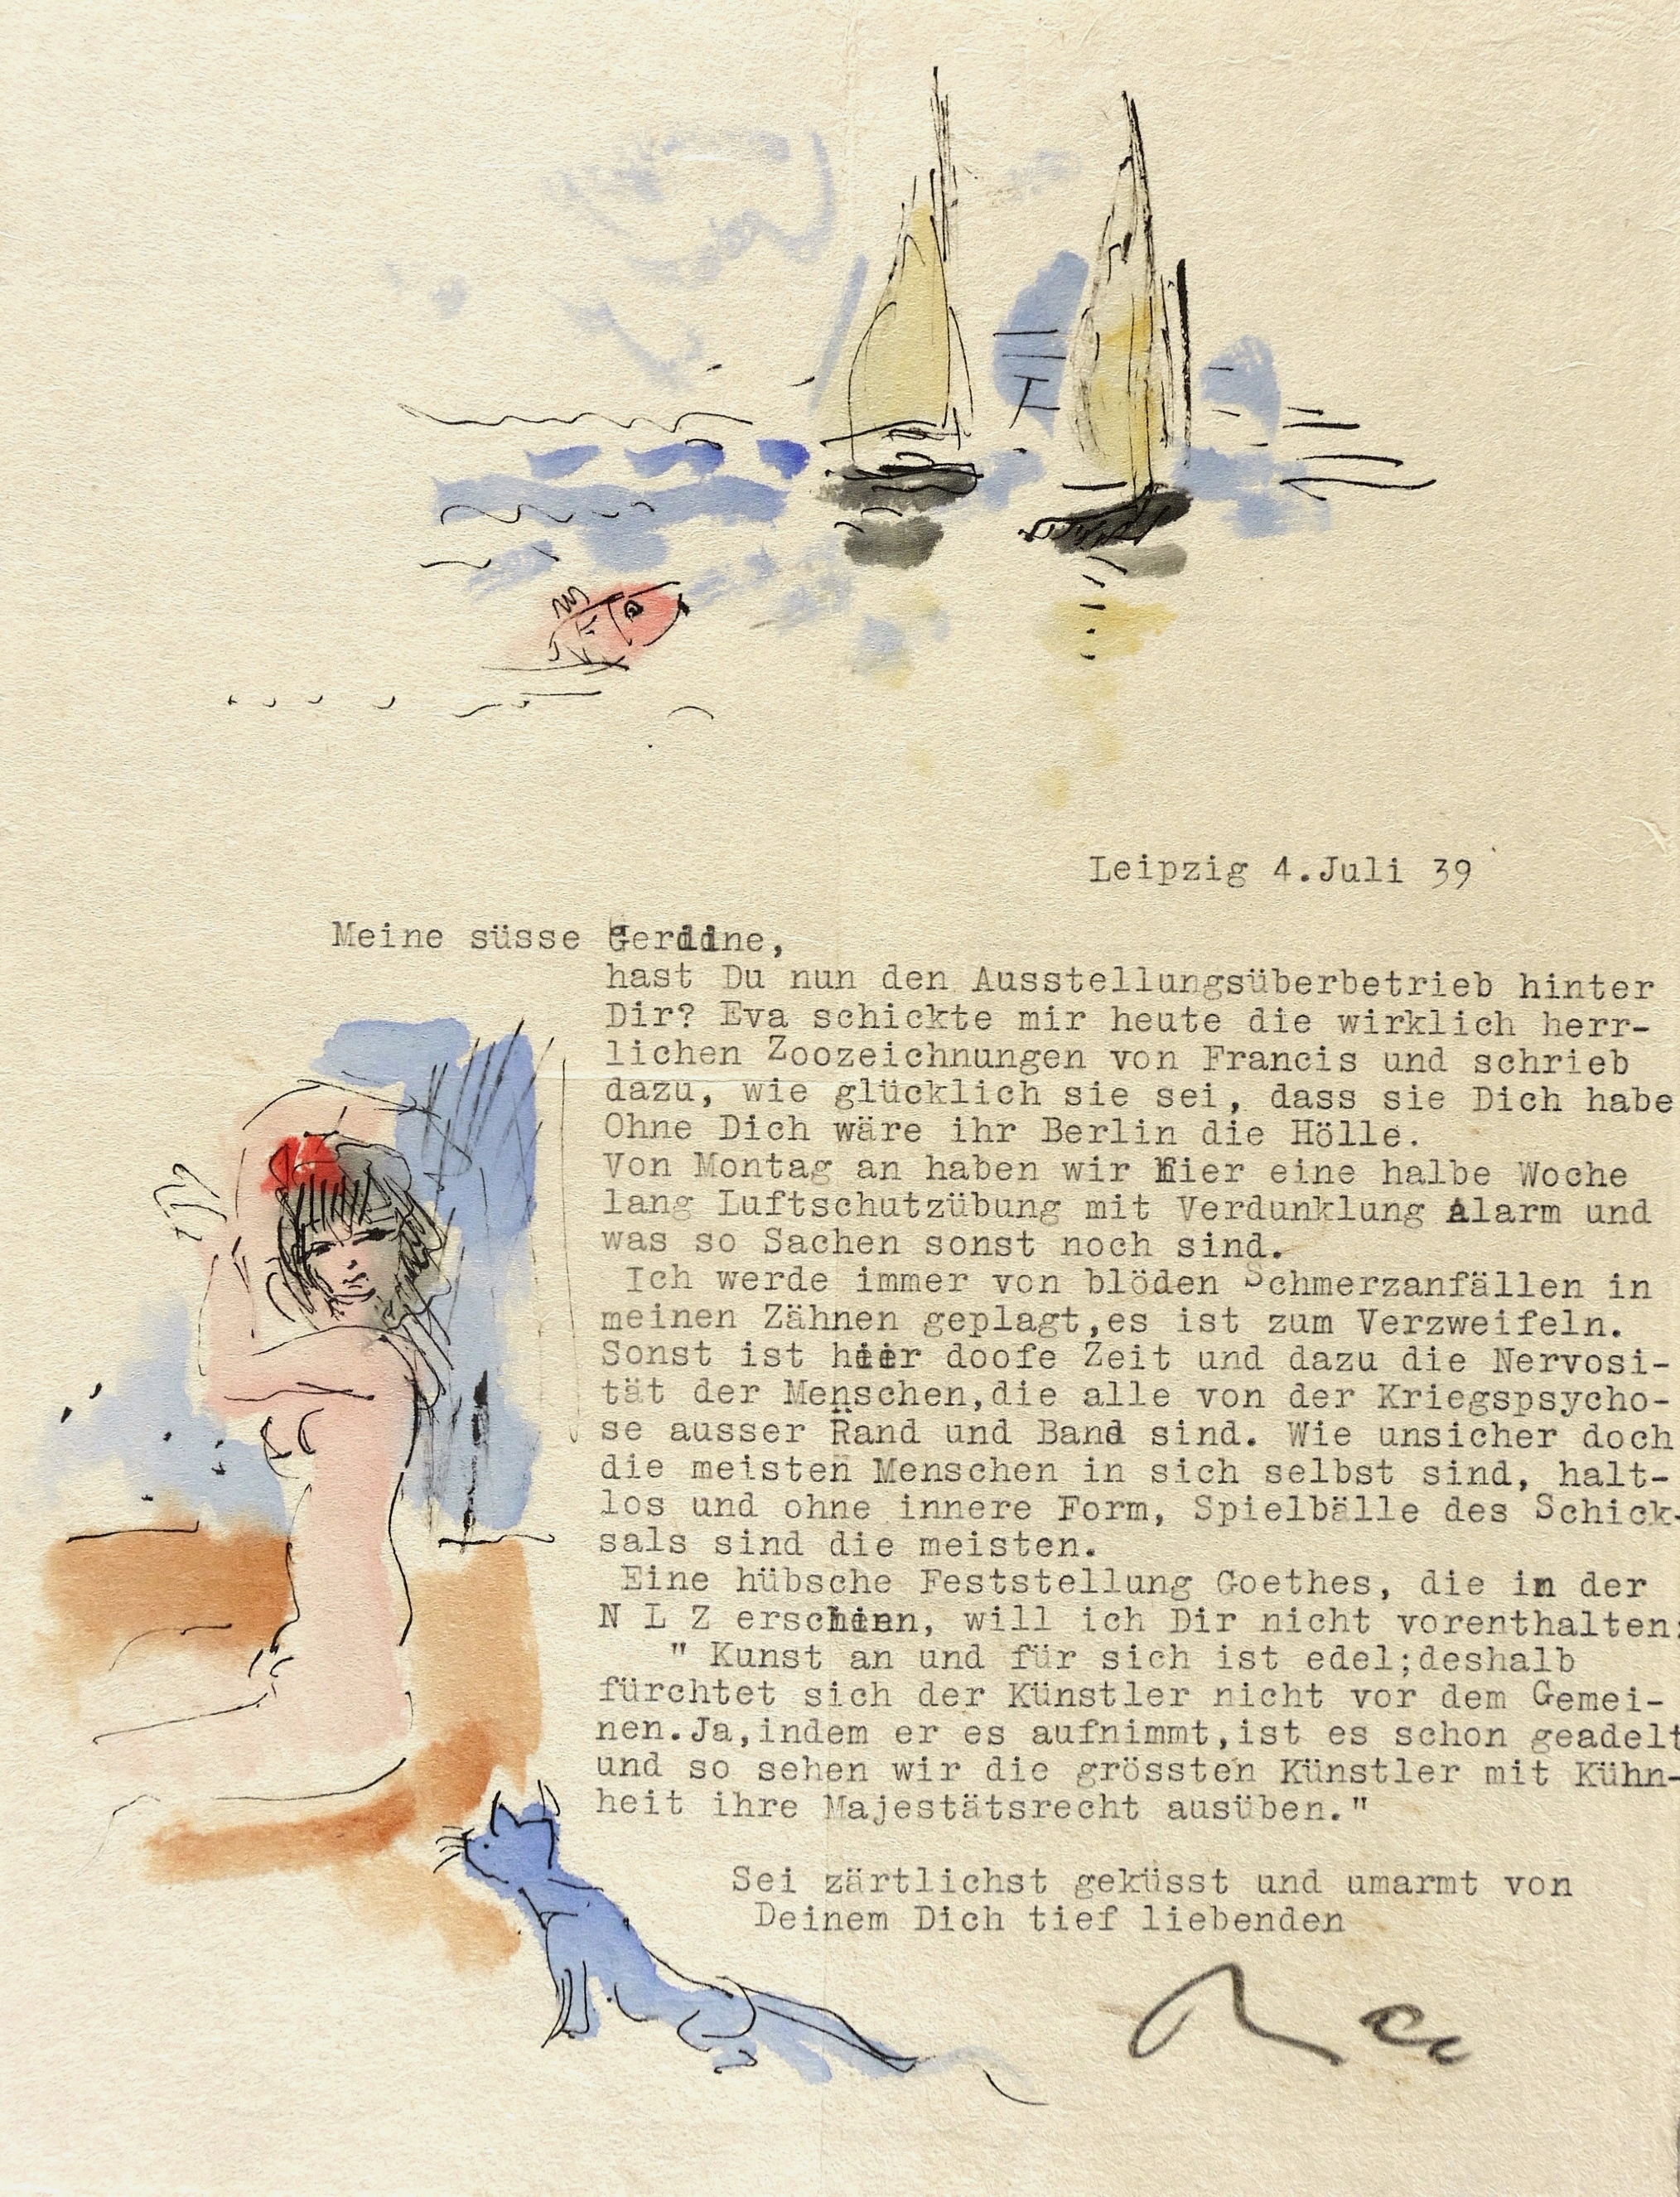 Leipzig 4.Juli 39
Meine süsse Gerdine,
hast Du nun den Ausstellungsüberbetrieb hinter
Dir? Eva schickte mir heute die wirklich herr-
lichen Zoozeichnungen von Francis und schrieb
dazu, wie glücklich sie sei, dass sie Dich habe
Ohne Dich wäre ihr Berlin die Hölle.
Von Montag an haben wir hier eine halbe Woche
lang Luftschutzübung mit Verdunklung Alarm und
was so Sachen sonst noch sind.
Ich werde immer von blöden Schmerzanfällen in
meinen Zähnen geplagt,es ist zum Verzweifeln.
Sonst ist hier doofe Zeit und dazu die Nervosi-
tät der Menschen,die alle von der Kriegspsycho-
se ausser Rand und Band sind. Wie unsicher doch
die meisten Menschen in sich selbst sind, halt-
los und ohne innere Form, Spielbälle des Schick-
sals sind die meisten.
Eine hübsche Feststellung Goethes, die in der
N L Z erschien, will ich Dir nicht vorenthalten:
" Kunst an und für sich ist edel;deshalb
fürchtet sich der Künstler nicht vor dem Gemei-
nen.Ja,indem er es aufnimmt,ist es schon geadelt
und so sehen wir die grössten Künstler mit Kühn-
heit ihre Majestätsrecht ausüben."
Sei zärtlichst geküsst und umarmt von
Deinem Dich tief liebenden